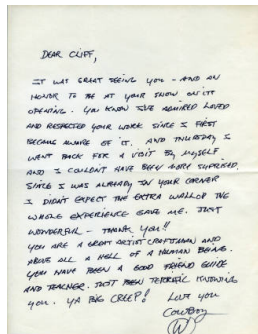 DEAR CLIFF,
IT WAS GREAT SEEING YOU - AND AN
HONOR TO BE AT YOUR SHOW ON ITS
OPENING. YOU KNOW I'VE ADMIRED LOVED
AND RESPECTED YOUR WORK SINCE I FIRST
BECAME AWARE OF IT. AND THURSDAY I
WENT BACK FOR A VISIT BY MYSELF
AND I COULDN'T HAVE BEEN MORE SUPRISED.
SINCE I WAS ALREADY IN YOUR CORNER
I DIDN'T EXPECT THE EXTRA WALLOP THE
WHOLE EXPERIENCE GAVE ME. JUST
WONDERFUL - THANK YOU!!
YOU ARE A GREAT ARTIST CRAFTSMAN AND
ABOVE ALL A HELL OF A HUMAN BEING.
YOU HAVE BEEN A GOOD FRIEND GUIDE
AND TEACHER. JUST BEEN TERRIFIC KNOWING
YOU. YA BIG CREEP! LOVE YOU
COWBOY